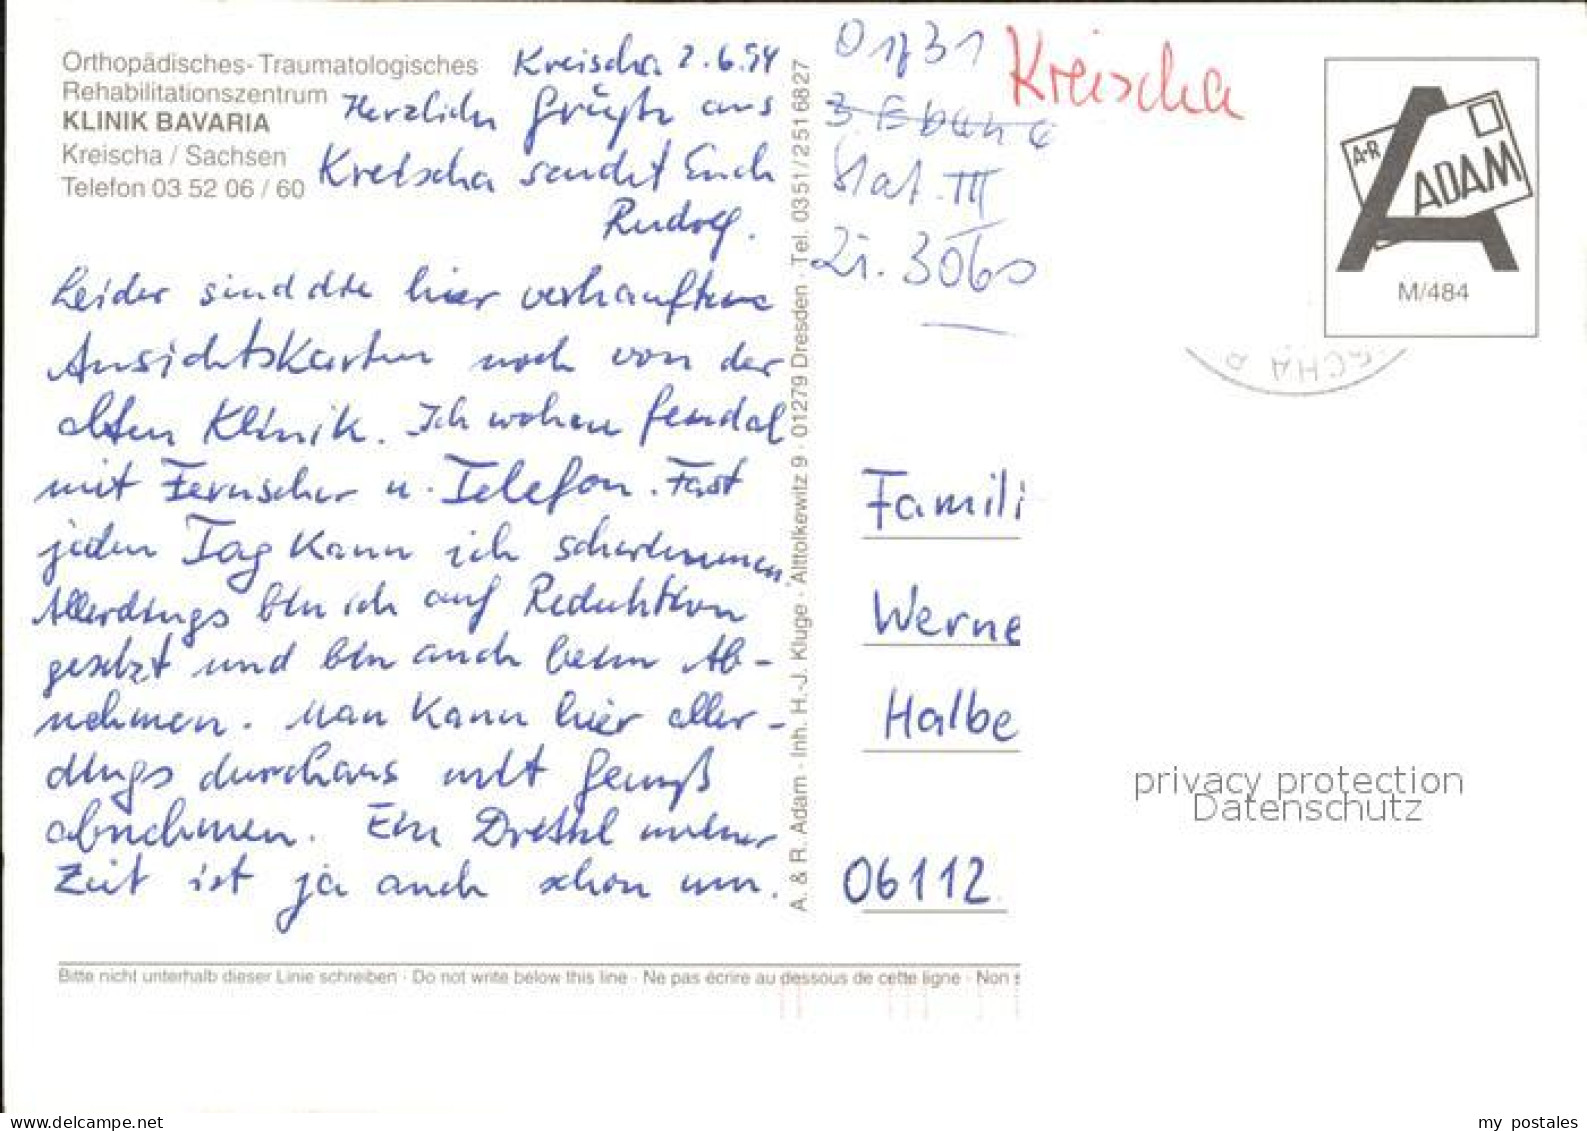 Orthopädisches-Traumatologisches
Rehabilitationszentrum
KLINIK BAVARIA
Kreischa / Sachsen
Telefon 03 52 06 / 60
Kreischa 2.6.94
Herzliche Grüße aus
Kreischa sendet Euch
Rudolf.
Leider sind die hier verkauften
Ansichtskarten noch von der
alten Klinik. Ich wohne feudal
mit Fernseher u. Telefon. Fast
jeden Tag kann ich schwimmen.
Allerdings bin ich auf Reduktion
gesetzt und bin auch beim Ab-
nehmen. Man kann hier aller-
dings durchaus mit Genuß
abnehmen. Ein Drittel meiner
Zeit ist ja auch schon um.
A. & R. Adam · Inh. H.-J. Kluge · Alttolkewitz 9 · 01279 Dresden · Tel. 0351/2516827
01731
Kreischa
3. Ebene
Stat. III
Zi. 3060
A+R
ADAM
M/484
Famili
Werne
Halbe
06112
privacy protection
Datenschutz
Bitte nicht unterhalb dieser Linie schreiben · Do not write below this line · Ne pas écrire au dessous de cette ligne · Non s
my postales